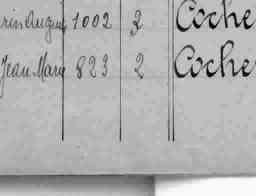 rin Auguste 1002 3 Coche
Jean Marie 823 2 Coche